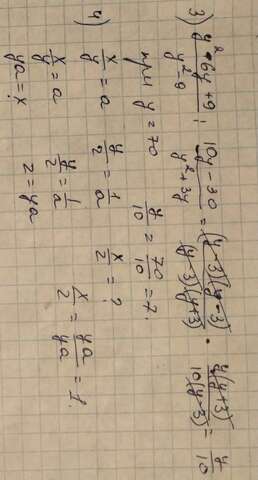 3) y²-6y+9 / y²-9 : 10y-30 / y²+3y = (y-3)(y-3) / (y-3)(y+3) · y(y+3) / 10(y-3) = y/10
при y=70 y/10 = 70/10 = 7.
4) x/y = a y/z = 1/a x/z = ?
x/y = a y/z = 1/a x/z = ya/ya = 1.
ya = x z = ya